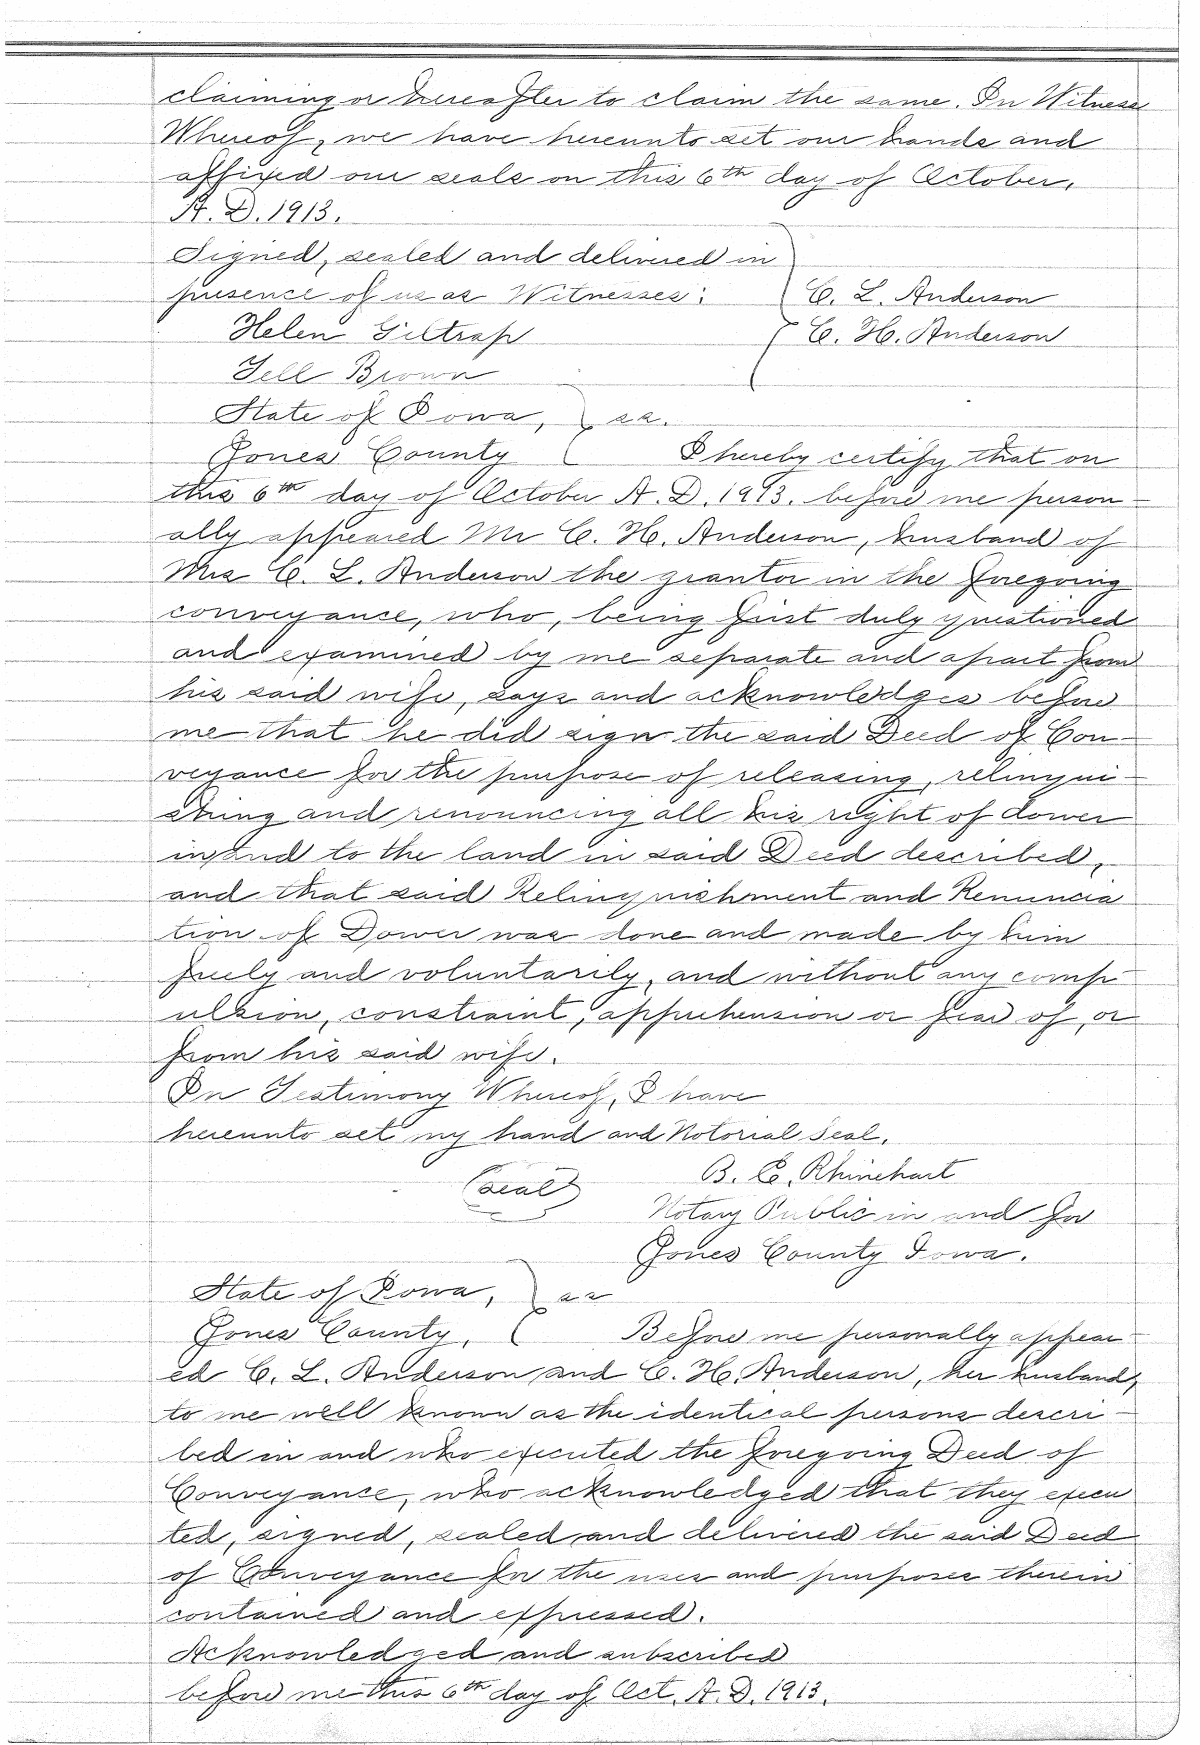 claiming or hereafter to claim the same. In Witness
Whereof, we have hereunto set our hands and
affixed our seals on this 6th day of October,
A. D. 1913.
Signed, sealed and delivered in
presence of us as Witnesses: C. L. Anderson
Helen Giltrap C. H. Anderson
Tell Brown
State of Iowa, ss.
Jones County I hereby certify that on
this 6th day of October A. D. 1913. before me person-
ally appeared Mr C. H. Anderson, husband of
Mrs C. L. Anderson the grantor in the foregoing
conveyance, who, being first duly questioned
and examined by me separate and apart from
his said wife, says and acknowledges before
me that he did sign the said Deed of Con-
veyance for the purpose of releasing, relinqui-
shing and renouncing all his right of dower
in and to the land in said Deed described,
and that said Relinquishment and Renuncia
tion of Dower was done and made by him
freely and voluntarily, and without any comp-
ulsion, constraint, apprehension or fear of, or
from his said wife.
In Testimony Whereof, I have
hereunto set my hand and Notorial Seal.
B. E. Rhinehart
(Seal) Notary Public in and for
Jones County Iowa.
State of Iowa, ss
Jones County, Before me personally appear-
ed C. L. Anderson and C. H. Anderson, her husband,
to me well known as the identical persons descri-
bed in and who executed the foregoing Deed of
Conveyance, who acknowledged that they execu
ted, signed, sealed and delivered the said Deed
of Conveyance for the uses and purposes therein
contained and expressed.
Acknowledged and subscribed
before me this 6th day of Oct. A. D. 1913.